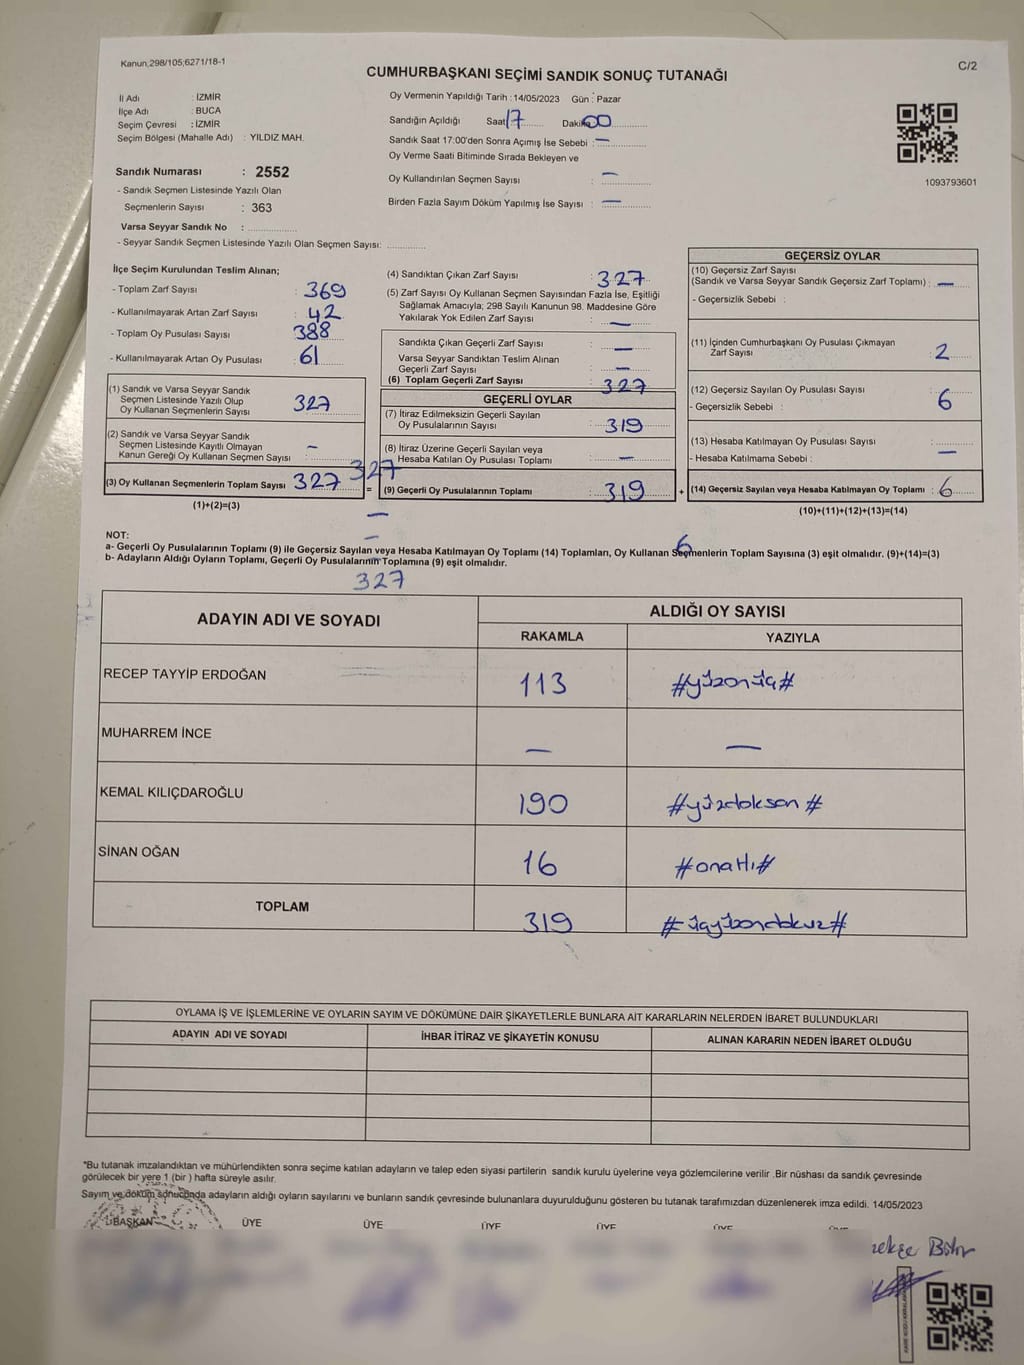 Kanun,298/105;6271/18-1
C/2
CUMHURBAŞKANI SEÇİMİ SANDIK SONUÇ TUTANAĞI
İl Adı : İZMİR
İlçe Adı : BUCA
Seçim Çevresi : İZMİR
Seçim Bölgesi (Mahalle Adı) : YILDIZ MAH.
Sandık Numarası : 2552
- Sandık Seçmen Listesinde Yazılı Olan
Seçmenlerin Sayısı : 363
Varsa Seyyar Sandık No :
- Seyyar Sandık Seçmen Listesinde Yazılı Olan Seçmen Sayısı:
Oy Vermenin Yapıldığı Tarih :14/05/2023 Gün : Pazar
Sandığın Açıldığı Saat 17 Dakika 00
Sandık Saat 17:00'den Sonra Açımış İse Sebebi : —
Oy Verme Saati Bitiminde Sırada Bekleyen ve
Oy Kullandırılan Seçmen Sayısı : —
Birden Fazla Sayım Döküm Yapılmış İse Sayısı : —
1093793601
İlçe Seçim Kurulundan Teslim Alınan;
- Toplam Zarf Sayısı : 369
- Kullanılmayarak Artan Zarf Sayısı : 42
- Toplam Oy Pusulası Sayısı : 388
- Kullanılmayarak Artan Oy Pusulası : 61
(1) Sandık ve Varsa Seyyar Sandık
Seçmen Listesinde Yazılı Olup
Oy Kullanan Seçmenlerin Sayısı 327
(2) Sandık ve Varsa Seyyar Sandık
Seçmen Listesinde Kayıtlı Olmayan
Kanun Gereği Oy Kullanan Seçmen Sayısı : —
(3) Oy Kullanan Seçmenlerin Toplam Sayısı 327
327
=
(1)+(2)=(3)
(4) Sandıktan Çıkan Zarf Sayısı : 327
(5) Zarf Sayısı Oy Kullanan Seçmen Sayısından Fazla İse, Eşitliği
Sağlamak Amacıyla; 298 Sayılı Kanunun 98. Maddesine Göre
Yakılarak Yok Edilen Zarf Sayısı : —
Sandıkta Çıkan Geçerli Zarf Sayısı : —
Varsa Seyyar Sandıktan Teslim Alınan
Geçerli Zarf Sayısı : —
(6) Toplam Geçerli Zarf Sayısı : 327
GEÇERLİ OYLAR
(7) İtiraz Edilmeksizin Geçerli Sayılan
Oy Pusulalarının Sayısı : 319
(8) İtiraz Üzerine Geçerli Sayılan veya
Hesaba Katılan Oy Pusulası Toplamı : —
(9) Geçerli Oy Pusulalarının Toplamı : 319
—
+
GEÇERSİZ OYLAR
(10) Geçersiz Zarf Sayısı
(Sandık ve Varsa Seyyar Sandık Geçersiz Zarf Toplamı) : —
- Geçersizlik Sebebi :
(11) İçinden Cumhurbaşkanı Oy Pusulası Çıkmayan
Zarf Sayısı : 2
(12) Geçersiz Sayılan Oy Pusulası Sayısı : 6
- Geçersizlik Sebebi :
(13) Hesaba Katılmayan Oy Pusulası Sayısı : —
- Hesaba Katılmama Sebebi :
(14) Geçersiz Sayılan veya Hesaba Katılmayan Oy Toplamı : 6
(10)+(11)+(12)+(13)=(14)
NOT:
—
6
a- Geçerli Oy Pusulalarının Toplamı (9) ile Geçersiz Sayılan veya Hesaba Katılmayan Oy Toplamı (14) Toplamları, Oy Kullanan Seçmenlerin Toplam Sayısına (3) eşit olmalıdır. (9)+(14)=(3)
b- Adayların Aldığı Oyların Toplamı, Geçerli Oy Pusulalarının Toplamına (9) eşit olmalıdır.
327
ADAYIN ADI VE SOYADI
ALDIĞI OY SAYISI
RAKAMLA YAZIYLA
RECEP TAYYİP ERDOĞAN 113 #yüzonüç#
MUHARREM İNCE — —
KEMAL KILIÇDAROĞLU 190 #yüzdoksan#
SİNAN OĞAN 16 #onaltı#
TOPLAM 319 #üçyüzondokuz#
OYLAMA İŞ VE İŞLEMLERİNE VE OYLARIN SAYIM VE DÖKÜMÜNE DAİR ŞİKAYETLERLE BUNLARA AİT KARARLARIN NELERDEN İBARET BULUNDUKLARI
ADAYIN ADI VE SOYADI İHBAR İTİRAZ VE ŞİKAYETİN KONUSU ALINAN KARARIN NEDEN İBARET OLDUĞU
*Bu tutanak imzalandıktan ve mühürlendikten sonra seçime katılan adayların ve talep eden siyasi partilerin sandık kurulu üyelerine veya gözlemcilerine verilir .Bir nüshası da sandık çevresinde
görülecek bir yere 1 (bir ) hafta süreyle asılır.
Sayım ve döküm sonucunda adayların aldığı oyların sayılarını ve bunların sandık çevresinde bulunanlara duyurulduğunu gösteren bu tutanak tarafımızdan düzenlenerek imza edildi. 14/05/2023
BAŞKAN ÜYE ÜYE ÜYE ÜYE ÜYE ÜYE